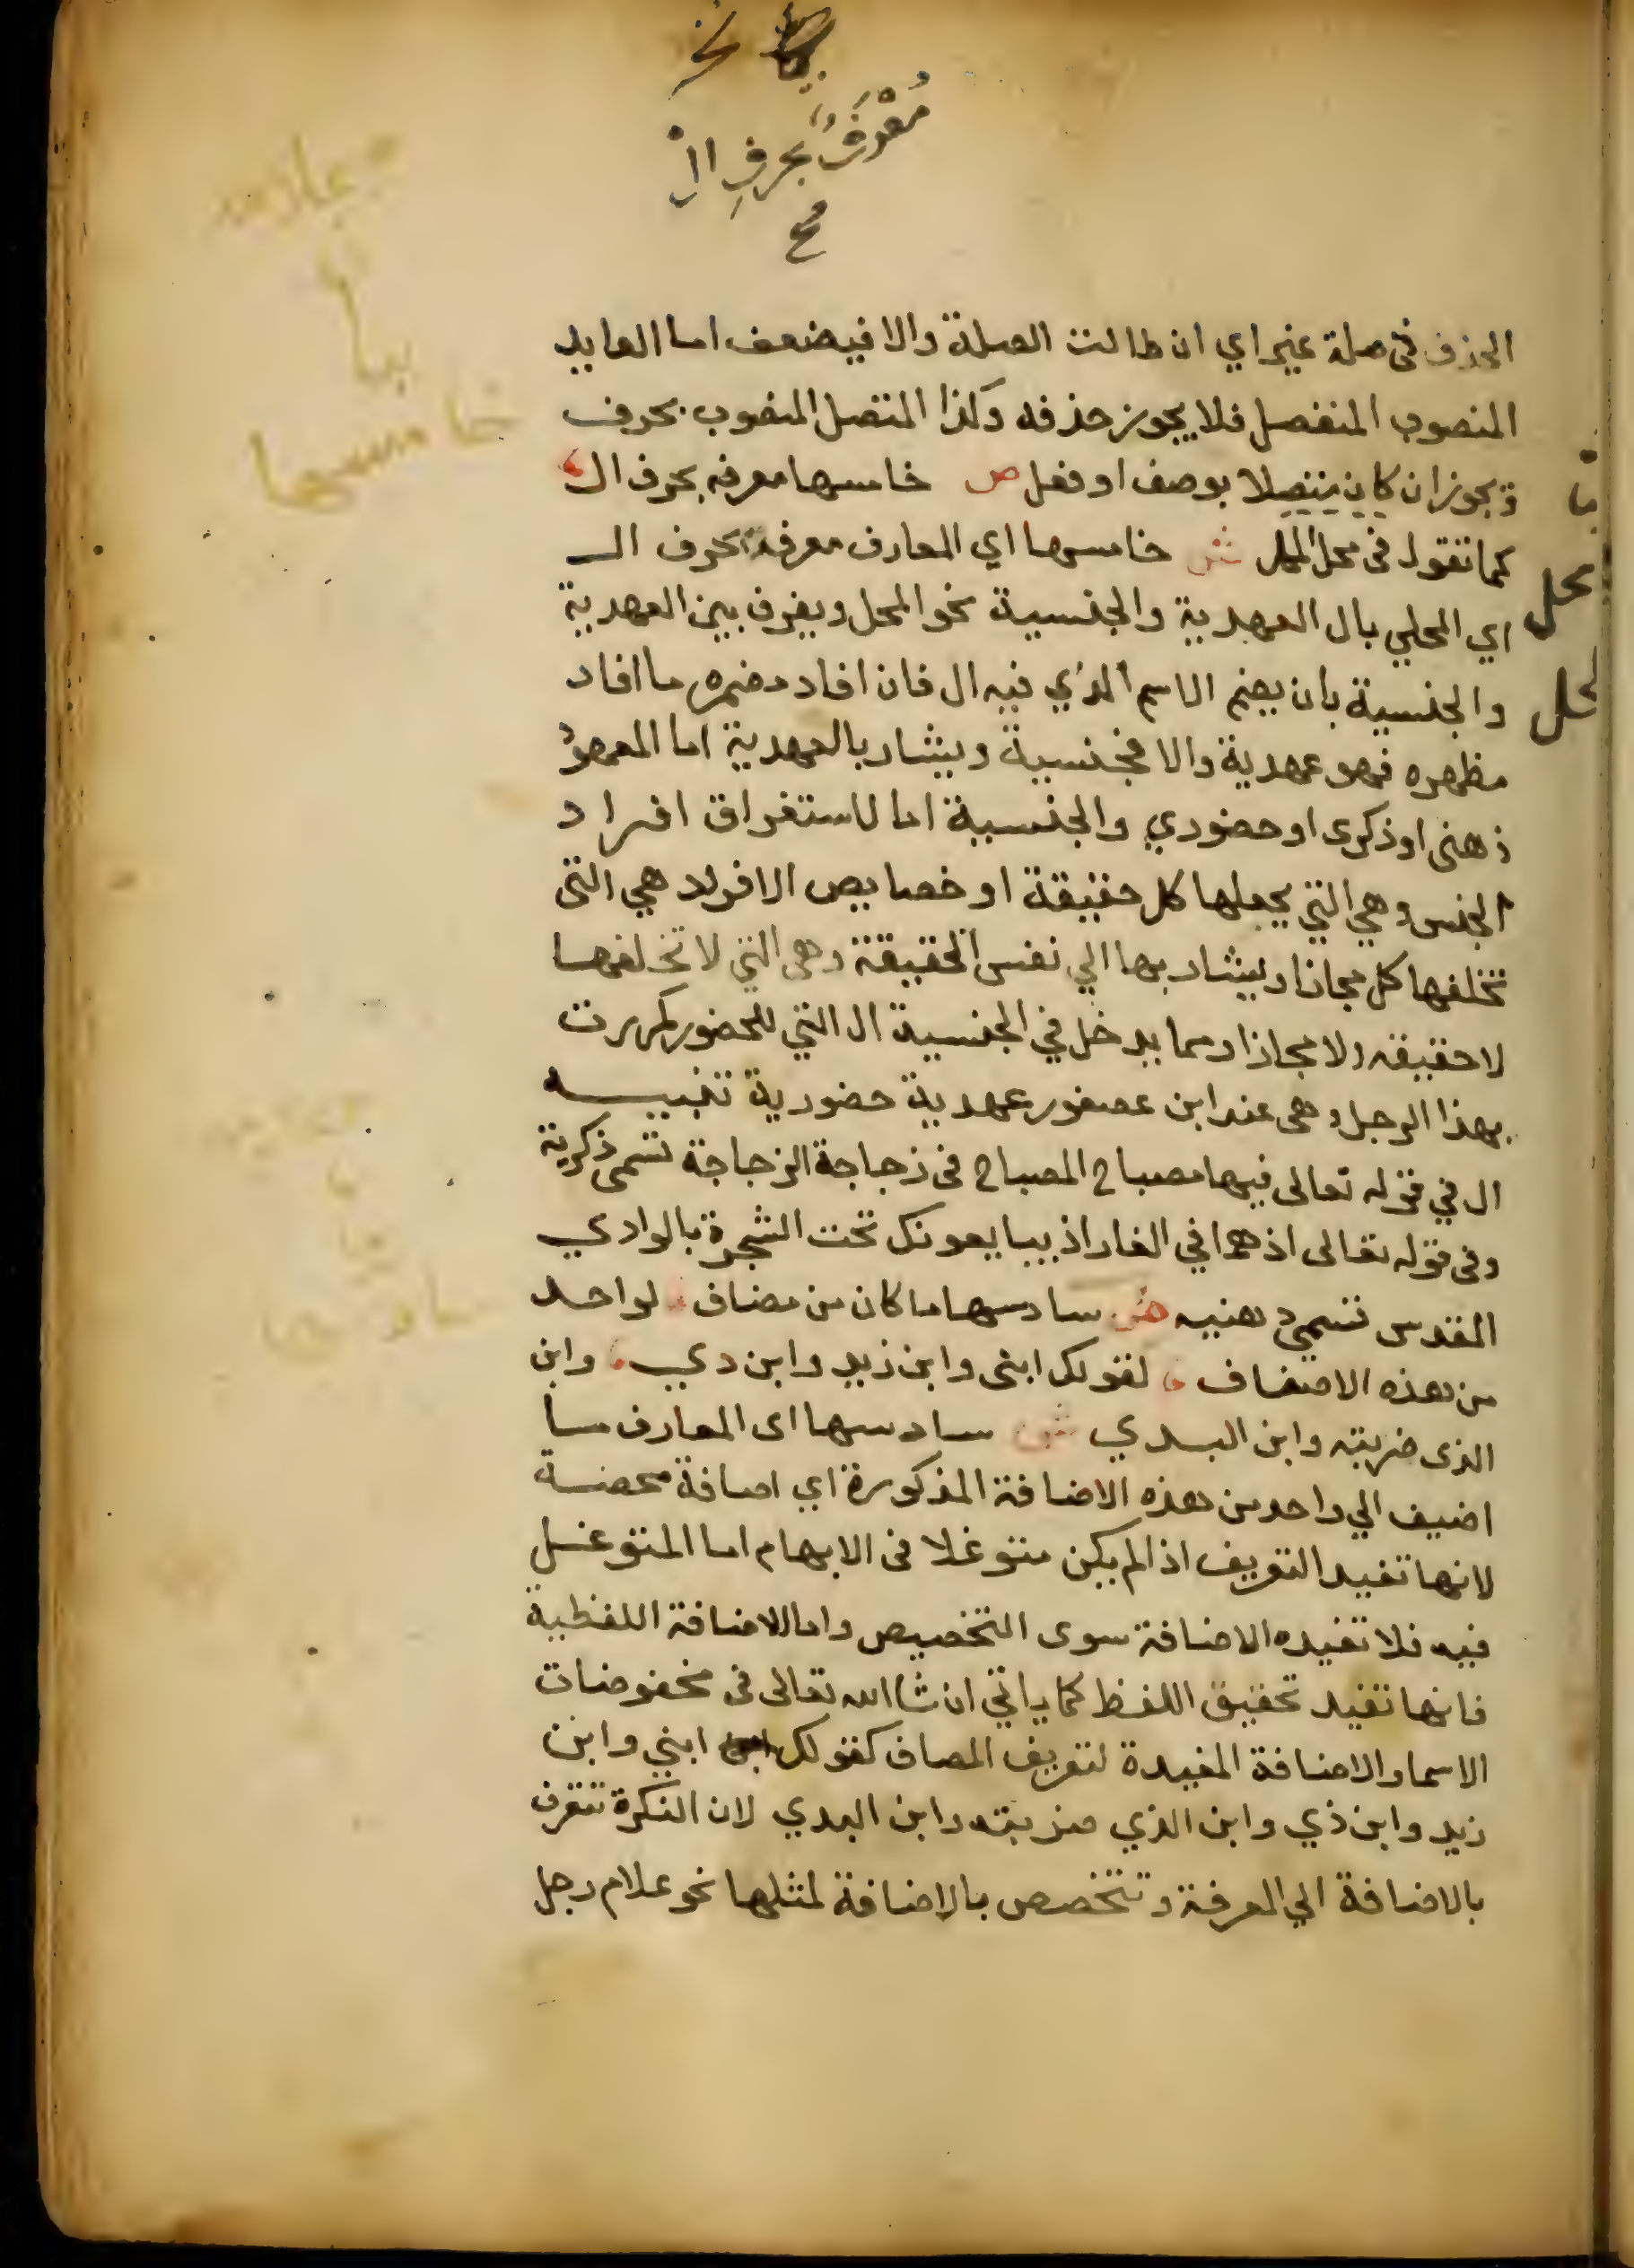 نخ
مُعْرَفَةً بحرفِ الْ
صح
الحذف فى صلة غير اي ان طالت الصلة والا فيضعف اما العايد
المنصوب المنفصل فلا يجوز حذفه وكذا المتصل المنصوب بحرف
ويجوز ان كان متصلا بوصف او فعل ص خامسها معرفه بحرف ال
كما تقول فى محل المحل ش خامسها اي المعارف معرفة بحرف ال
اي المحلي بال العهدية والجنسية نحو المحل ويفرق بين العهدية
والجنسية بان يضم الاسم الذي فيه ال فان افاد مضمره ما افاد
مظهره فهو عهدية والا فجنسية ويشار بالعهدية اما المعهود
ذهنى او ذكرى او حضوري والجنسية اما لاستغراق افراد
الجنس وهي التي يجعلها كل حقيقة او خصايص الافراد هي التى
تخلفها كل مجازا ويشار بها الي نفس الحقيقة وهى التي لا تخلفها
لا حقيقه ولا مجازا ومما يدخل في الجنسية ال التي للحضور كمررت
بهذا الرجل وهى عند ابن عصفور عهدية حضورية تنبيه
ال في قوله تعالى فيها مصباح المصباح فى زجاجة الزجاجة تسمى ذكرية
وفى قوله تعالى اذ هما في الغار اذ يبايعونك تحت الشجرة بالوادي
المقدس تسمي ذهنيه ص سادسها ما كان من مضاف لواحد
من هذه الاصناف كقولك ابنى وابن زيد وابن ذي وابن
الذى ضربته وابن البدي ش سادسها اى المعارف ما
اضيف الي واحد من هذه الاضافة المذكورة اي اضافة محضة
لانها تفيد التعريف اذا لم يكن متوغلا فى الابهام اما المتوغل
فيه فلا تفيده الاضافة سوى التخصيص واما الاضافة اللفظية
فانها تفيد تحقيق اللفظ كما ياتي ان شا الله تعالى فى مخفوضات
الاسما والاضافة المفيدة لتعريف المضاف كقولك ابني وابن
زيد وابن ذي وابن الذي ضربته وابن البدي لان النكرة تتعرف
بالاضافة الي المعرفة وتتخصص بالاضافة لمثلها نحو غلام رجل
محل
لمحل